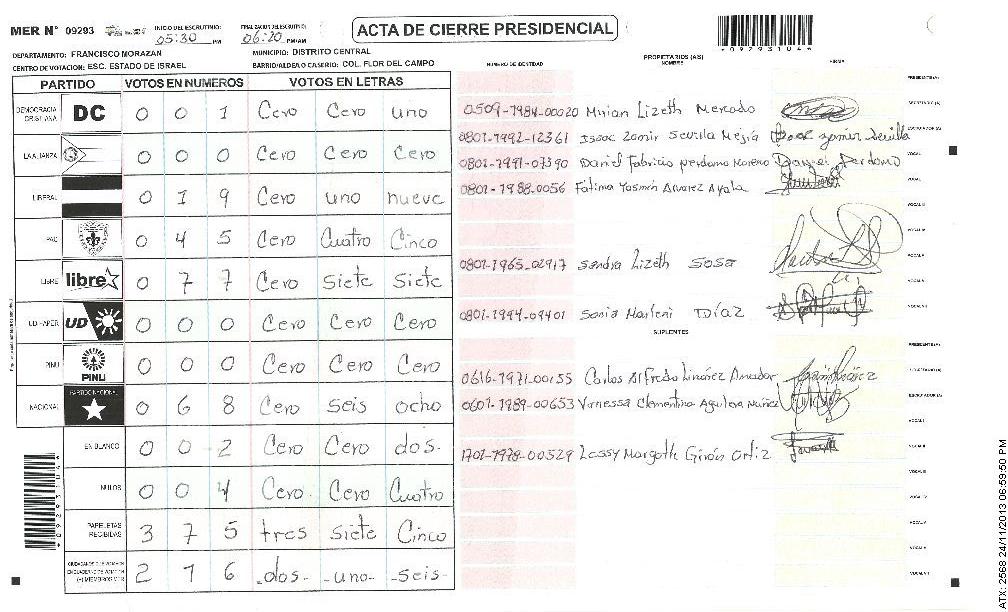 MER N° 09293 INICIO DEL ESCRUTINIO: 05:30 PM FINALIZACION DEL ESCRUTINIO: 06:20 PM/AM ACTA DE CIERRE PRESIDENCIAL
*09293104*
DEPARTAMENTO: FRANCISCO MORAZAN MUNICIPIO: DISTRITO CENTRAL
CENTRO DE VOTACION: ESC. ESTADO DE ISRAEL BARRIO/ALDEA O CASERIO: COL. FLOR DEL CAMPO
PARTIDO VOTOS EN NUMEROS VOTOS EN LETRAS
DEMOCRACIA CRISTIANA DC 0 0 1 Cero Cero uno
LA ALIANZA 0 0 0 Cero Cero Cero
LIBERAL 0 1 9 Cero uno nueve
PAC 0 4 5 Cero Cuatro Cinco
LIBRE libre 0 7 7 Cero Siete Siete
UD FAPER UD 0 0 0 Cero Cero Cero
PINU PINU 0 0 0 Cero Cero Cero
NACIONAL PARTIDO NACIONAL 0 6 8 Cero seis ocho
EN BLANCO 0 0 2 Cero Cero dos-
NULOS 0 0 4 Cero. Cero Cuatro
PAPELETAS RECIBIDAS 3 7 5 tres siete Cinco
2 1 6 -dos- -uno- -seis-
NUMERO DE IDENTIDAD PROPIETARIOS (AS) NOMBRE FIRMA
PRESIDENTE(A)
0509-1984-00020 Mirian Lizeth Mercado SECRETARIO (A)
0801-1992-12361 Isaac Zamir Sevilla Mejia ESCRUTADOR (A)
0801-1991-07390 Daniel Fabricio perdomo Moreno Daniel Perdomo VOCAL I
0801-1988-0056 Fatima Yasmin Alvarez Ayala VOCAL II
VOCAL III
VOCAL IV
0801-1965-02917 Sandra Lizeth Sosa VOCAL V
VOCAL VI
0801-1994-09401 Sonia Marleni Díaz VOCAL VII
SUPLENTES
PRESIDENTE(A)
0616-1971-00155 Carlos Alfredo Linarez Amador SECRETARIO (A)
0601-1989-00653 Vanessa Clementina Aguilera Nuñez ESCRUTADOR (A)
VOCAL I
1701-1978-00529 Lessy Margoth Girón Ortiz VOCAL II
VOCAL III
VOCAL IV
VOCAL V
VOCAL VI
VOCAL VII
ATX: 2568 24/11/2013 06:59:50 PM